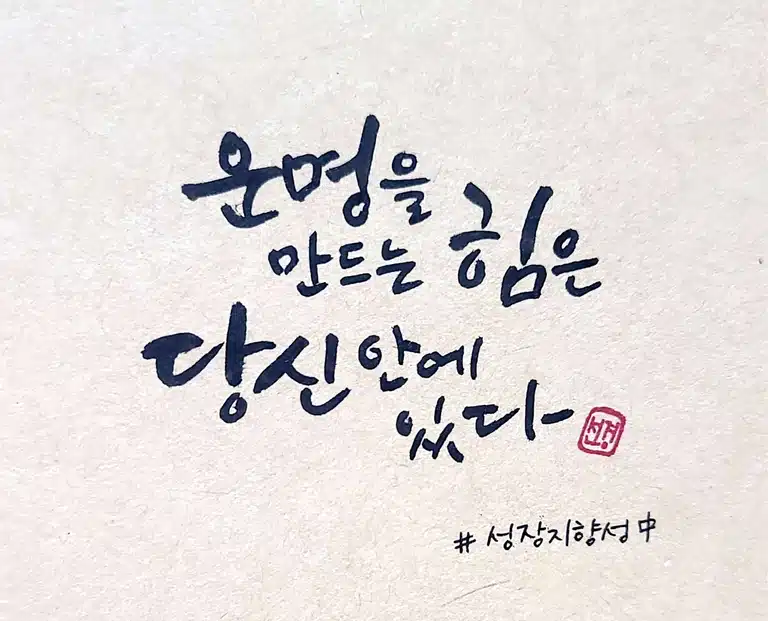 운명을
만드는 힘은
당신 안에
있다
선경
# 성장지향성中